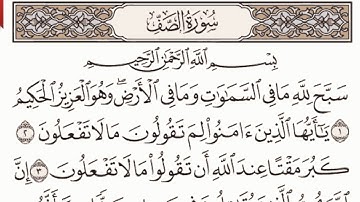 سُورَةُ الصَّفِّ
بِسْمِ اللَّهِ الرَّحْمَٰنِ الرَّحِيمِ
سَبَّحَ لِلَّهِ مَا فِي السَّمَاوَاتِ وَمَا فِي الْأَرْضِ ۖ وَهُوَ الْعَزِيزُ الْحَكِيمُ
١ يَا أَيُّهَا الَّذِينَ آمَنُوا لِمَ تَقُولُونَ مَا لَا تَفْعَلُونَ ٢
كَبُرَ مَقْتًا عِندَ اللَّهِ أَن تَقُولُوا مَا لَا تَفْعَلُونَ ٣ إِنَّ